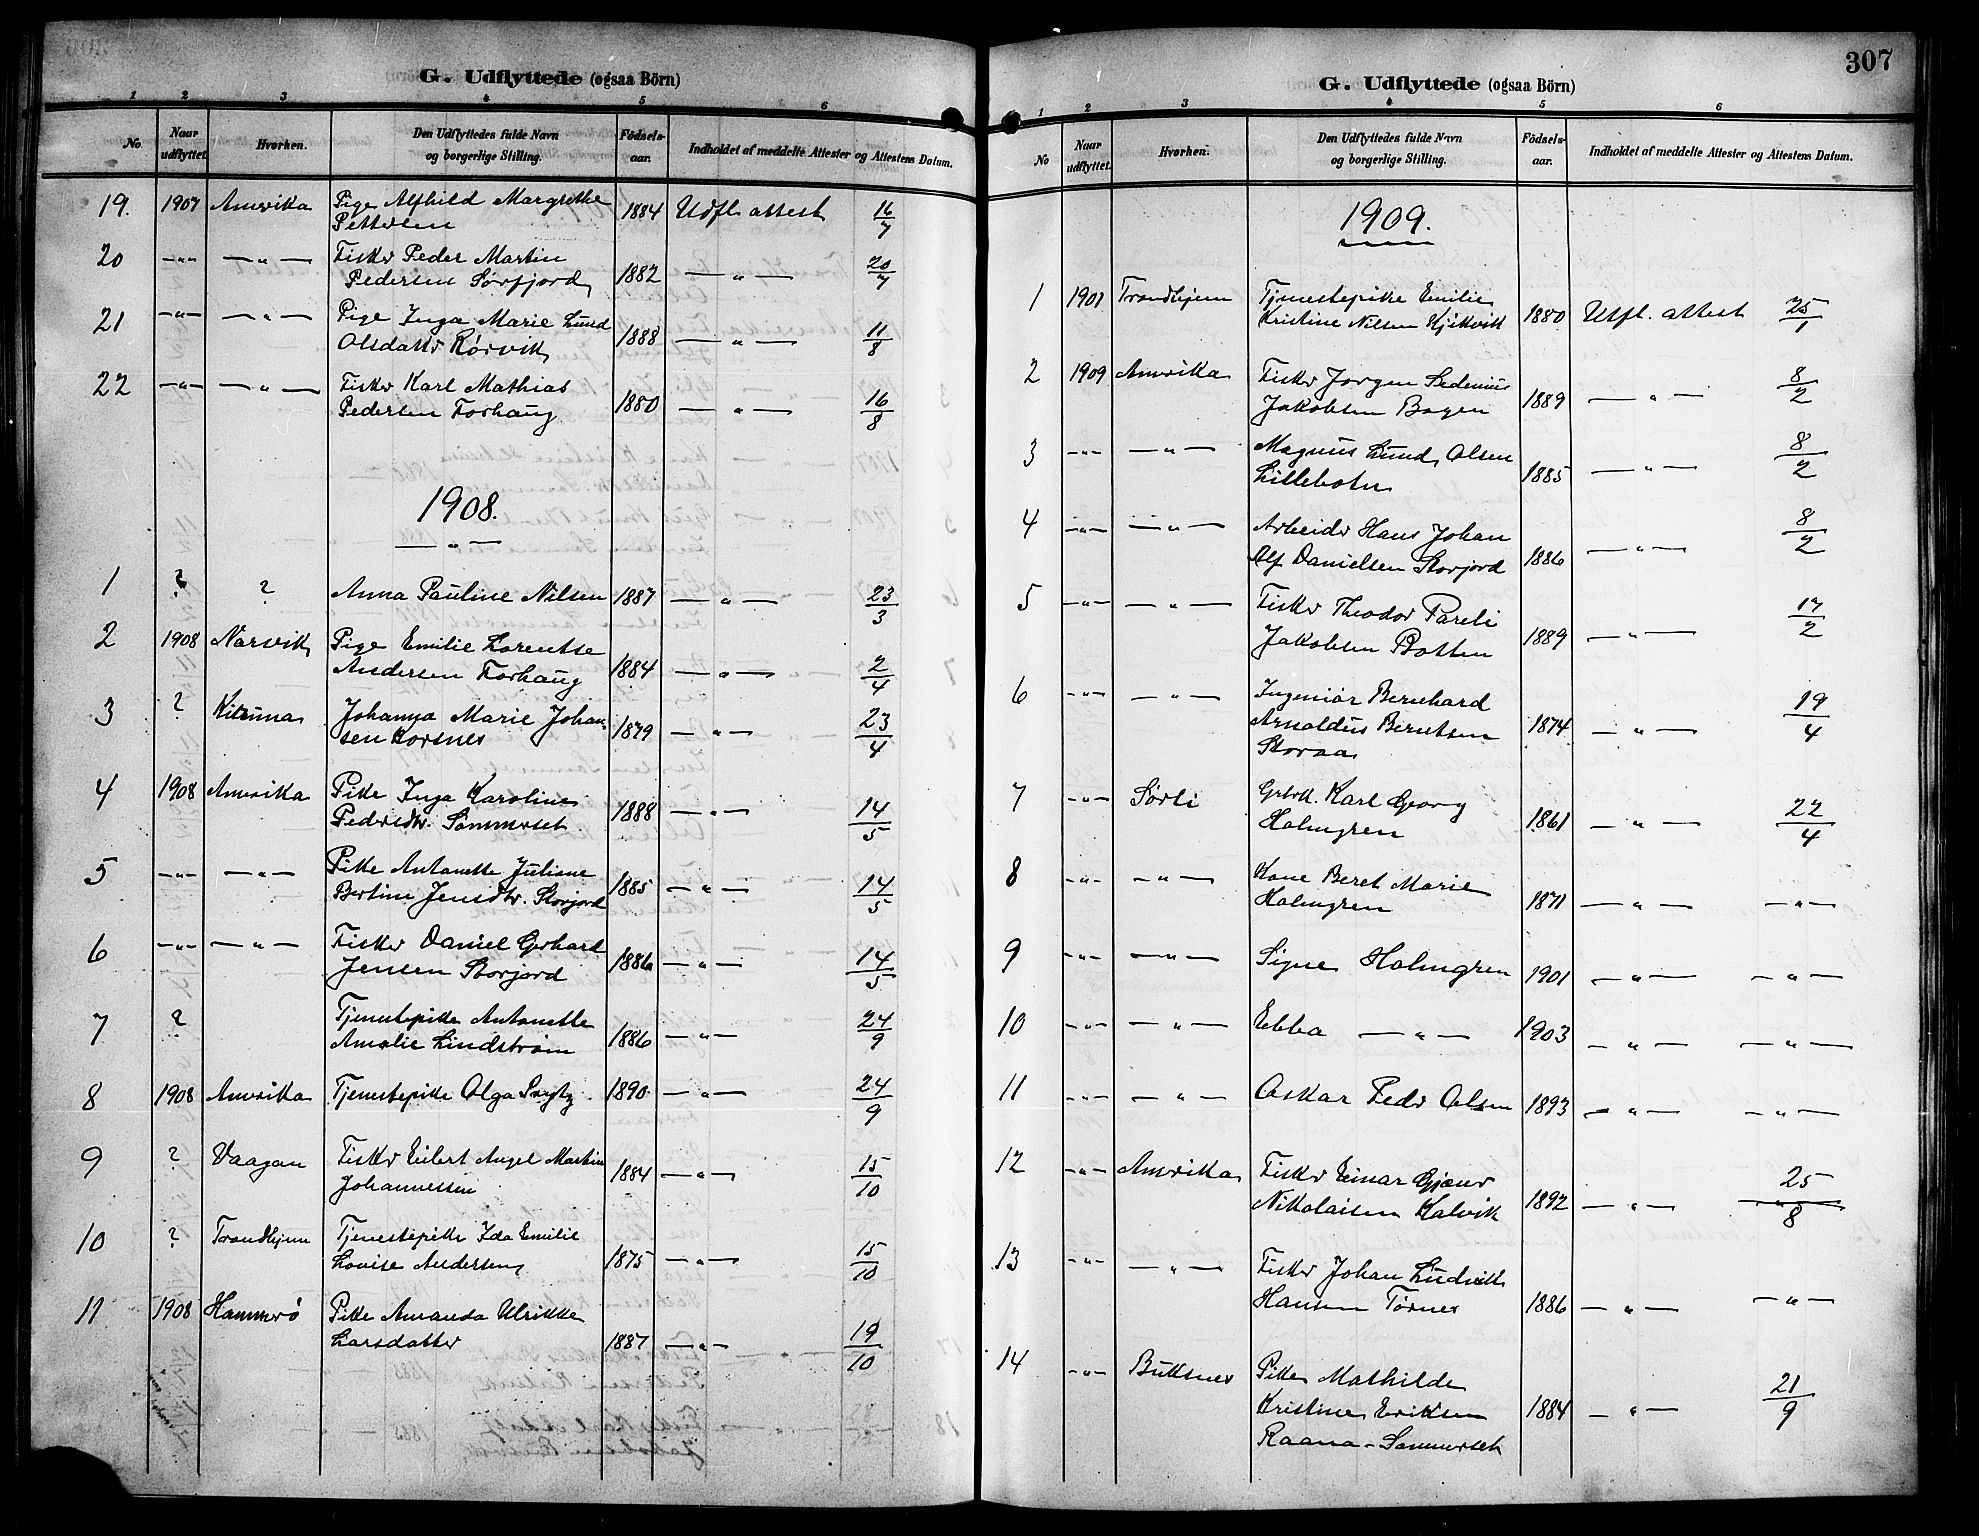 G. Udflyttede (ogsaa Börn)
1 2 3 4 5 6
No. Naar udflyttet. Hvorhen. Den Udflyttedes fulde Navn og borgerlige Stilling. Födsels-aar. Indholdet af meddelte Attester og Attestens Datum.
19. 1907 Amerika Pige Alfhild Margrethe
Pettersen 1884 Udfl. attest 16/7
20 -"- -"- Fisker Peder Martin
Pedersen Sørfjord 1882 -"- 20/7
21 -"- -"- Pige Inga Marie Lund
Olsdatter Rørvik 1888 -"- 11/8
22 -"- -"- Fisker Karl Mathias
Pedersen Forhaug 1880 -"- 16/8
1908.
-"-
1 ? ? Anna Pauline Nilsen 1887 -"- 23/3
2 1908 Narvik Pige Emilie Lorentse
Andersen Forhaug 1884 -"- 2/4
3 ? Kiruna Johanna Marie Johan-
sen Korsnes 1879 -"- 23/4
4 1908 Amerika Pike Inga Karoline
Pedersdtr. Sommerset 1888 -"- 14/5
5 -"- -"- Pike Antonette Juliane
Bertine Jensdtr. Storjord 1885 -"- 14/5
6 -"- -"- Fisker Daniel Gerhard
Jensen Storjord 1886 -"- 14/5
7 ? Tjenestepike Antonette
Amalie Lindstrøm 1886 -"- 24/9
8 1908 Amerika Tjenestepike Olga 1890 -"- 24/9
9 ? Vaagan Fisker Eilert Angel Martin
Johannessen 1884 -"- 15/10
10 ? Trondhjem Tjenestepike Ida Emilie
Lovise Andersen 1875 -"- 15/10
11 1908 Hammerö Pike Amanda Ulrikke
Larsdatter 1887 -"- 19/10
307
G. Udflyttede (ogsaa Börn)
1 2 3 4 5 6
No Naar udflyttet. Hvorhen. Den Udflyttedes fulde Navn og borgerlige Stilling. Födsels-aar. Indholdet af meddelte Attester og Attestens Datum.
1909.
1 1901 Trondhjem Tjenestepike Emilie
Kristine Nilsen Kjikvik 1880 Utfl. attest 25/1
2 1909 Amerika Fisker Jørgen Sedenius
Jakobsen Bogen 1889 -"- 8/2
3 -"- -"- Magnus Lund Olsen
Lillebotn 1885 -"- 8/2
4 -"- -"- Arbeider Hans Johan
Alf Danielsen Storjord 1886 -"- 8/2
5 -"- -"- Fisker Theodor Pareli
Jakobsen Botten 1889 -"- 17/2
6 -"- -"- Ingeniør Bernhard
Arnoldus Berntsen
Storaa 1874 -"- 19/4
7 -"- Sørli Grbrk. Karl Georg
Holmgren 1861 -"- 22/4
8 -"- -"- Kone Beret Marie
Holmgren 1871 -"- -"-
9 -"- -"- Signe Holmgren 1901 -"- -"-
10 -"- -"- Ebba -"- 1903 -"- -"-
11 -"- -"- Oskar Peder Olsen 1893 -"- -"-
12 -"- Amerika Fisker Einar Gjæver
Nikolaisen Kalvik 1892 -"- 25/8
13 -"- -"- Fisker Johan Ludvik
Hansen Tørnes 1886 -"- -"-
14 -"- Buksnes Pike Mathilde
Kristine Eriksen
Raana - Sommerset 1884 -"- 21/9